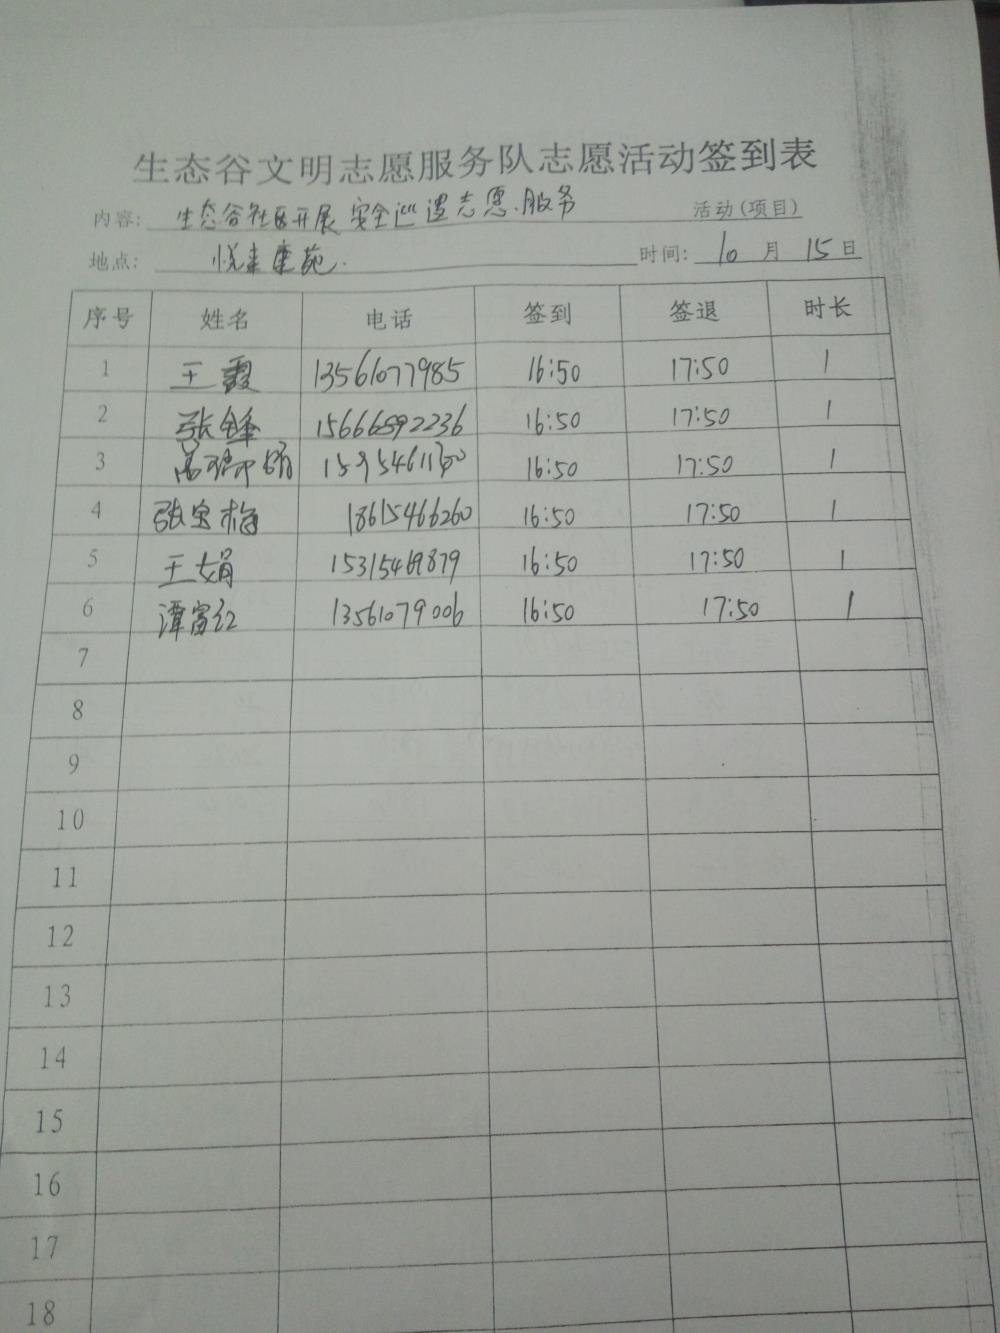 生态谷文明志愿服务队志愿活动签到表
内容: 生态谷社区开展安全巡逻志愿服务 活动(项目)
地点: 悦来康苑. 时间: 10 月 15 日
序号 姓名 电话 签到 签退 时长
1 王霞 13561077985 16:50 17:50 1
2 张锋 15666592236 16:50 17:50 1
3 16:50 17:50 1
4 张宝梅 18615466260 16:50 17:50 1
5 王娟 15315469879 16:50 17:50 1
6 谭富红 13561079006 16:50 17:50 1
7
8
9
10
11
12
13
14
15
16
17
18